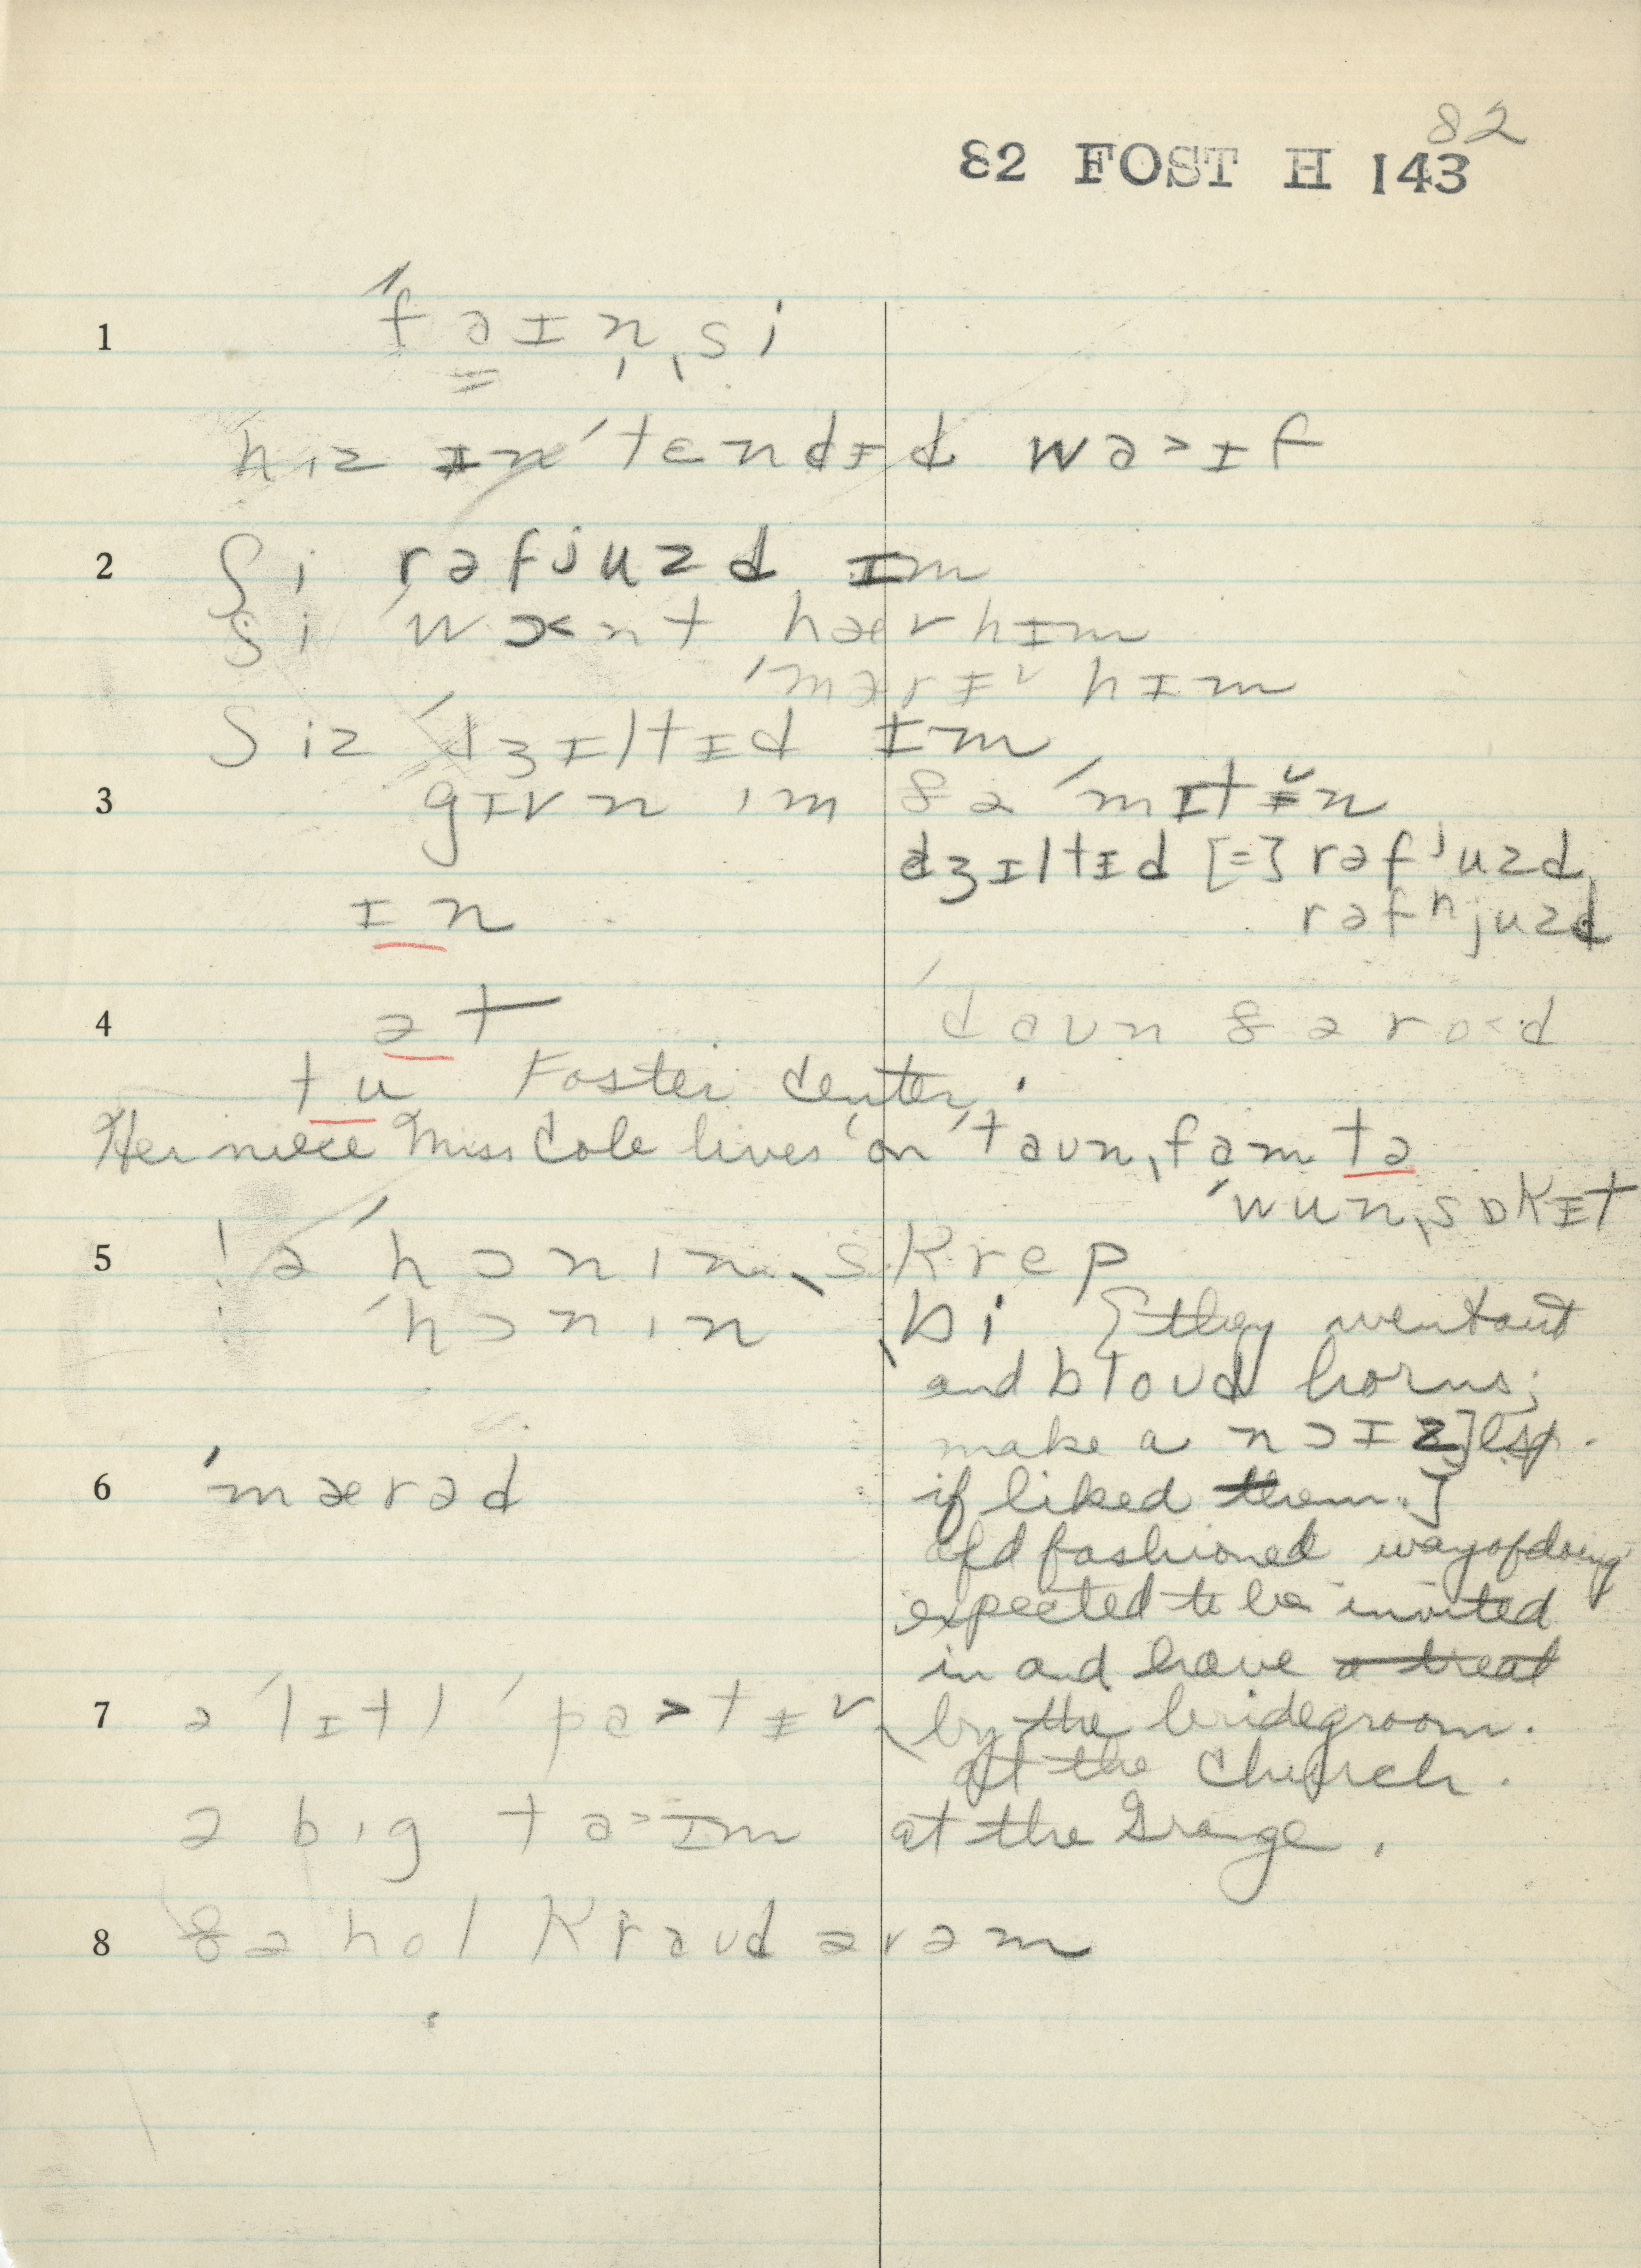 82
82 FOST H 143
1 ˈfəɪnˌsi
hɪz ɪnˈtɛndɪd wa˃ɪf
2 ʃi rəfjuzd ɪm
ʃi ˈw hærhɪm
ˈmærɪ˅ hɪm
ʃiz ˈdʒɪltɪd ɪm
3 gɪvn ɪm ðə ˈmɪtɪ̆n
dʒɪltɪd [=] rəfʲuzd,
ɪn rəfʰjuzd
4 ət ˈdaʊn ðə ro˂d
tu Foster Center.
Her niece Miss Cole lives on ˈtaʊnˌfam tə
ˈwunˌsɒkɪt
5 ! ə ˈhɔnɪnˌskrep
! ˈhɔnɪn ˌbi [they went out
and bloʊd horns;
make a nɔɪz] esp.
6 ˈmærəd if liked them.]
old fashioned way of doing
expected to be invited
in and have a treat
7 ə ˈlɪtl ˈpa˃tɪ˅ by the bridegroom.
at the church.
ə bɪg ta˃ɪm at the Grange.
8 ðə hol kraʊd əv əm